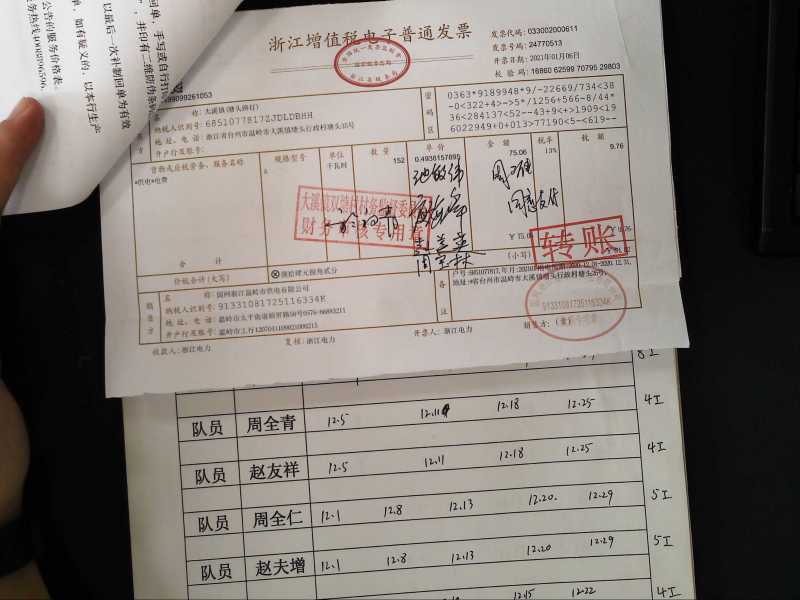 回单，手写或自行打
，并印有二维防伪条码
以最后一次补制回单为有效
单，如有疑义的，以本行生产
公告的服务价格表
务热线4008096596
浙江增值税电子普通发票
发票代码：033002000611
发票号码：24770513
开票日期：2021年01月06日
校 验 码：16860 62599 70795 29803
499099261053
名　　称：大溪镇(塘头路灯)
纳税人识别号：6851077817ZJDLDBHH
地 址、电 话：浙江省台州市温岭市大溪镇塘头行政村塘头15号
开户行及账号：
密码区
0363*9189948*9/-22669/734<38
-0<322+4>->5*/1256+566-8/44*
36<284137<52--43+9<+>1909<19
6022949+0+013>77190<5-<619--
货物或应税劳务、服务名称
规格型号
单位
数 量
单价
金 额
税率
税 额
*供电*电费
千瓦时
152
0.4938157895
75.06
13%
9.76
财务审核专用章
同意支付
转账
合　　计
￥75.06
￥9.76
价税合计(大写)
捌拾肆元捌角贰分
(小写)
销售方
名　　称：国网浙江温岭市供电有限公司
纳税人识别号：91331081725116334K
地 址、电 话：温岭市太平街道
开户行及账号：温岭市工行1207041109021009213
备注
地址:浙江省台州市温岭市大溪镇塘头行政村塘头15号,
91331081725116334K
收款人：浙江电力
复核：浙江电力
开票人：浙江电力
销售方：(章)
8工
队员 周全青 12.5 12.11 12.18 12.25 4工
队员 赵友祥 12.5 12.11 12.18 12.25 4工
队员 周全仁 12.1 12.8 12.13 12.20. 12.29 5工
队员 赵夫增 12.1 12.8 12.13 12.20 12.29 5工
12.15 12.22 4工